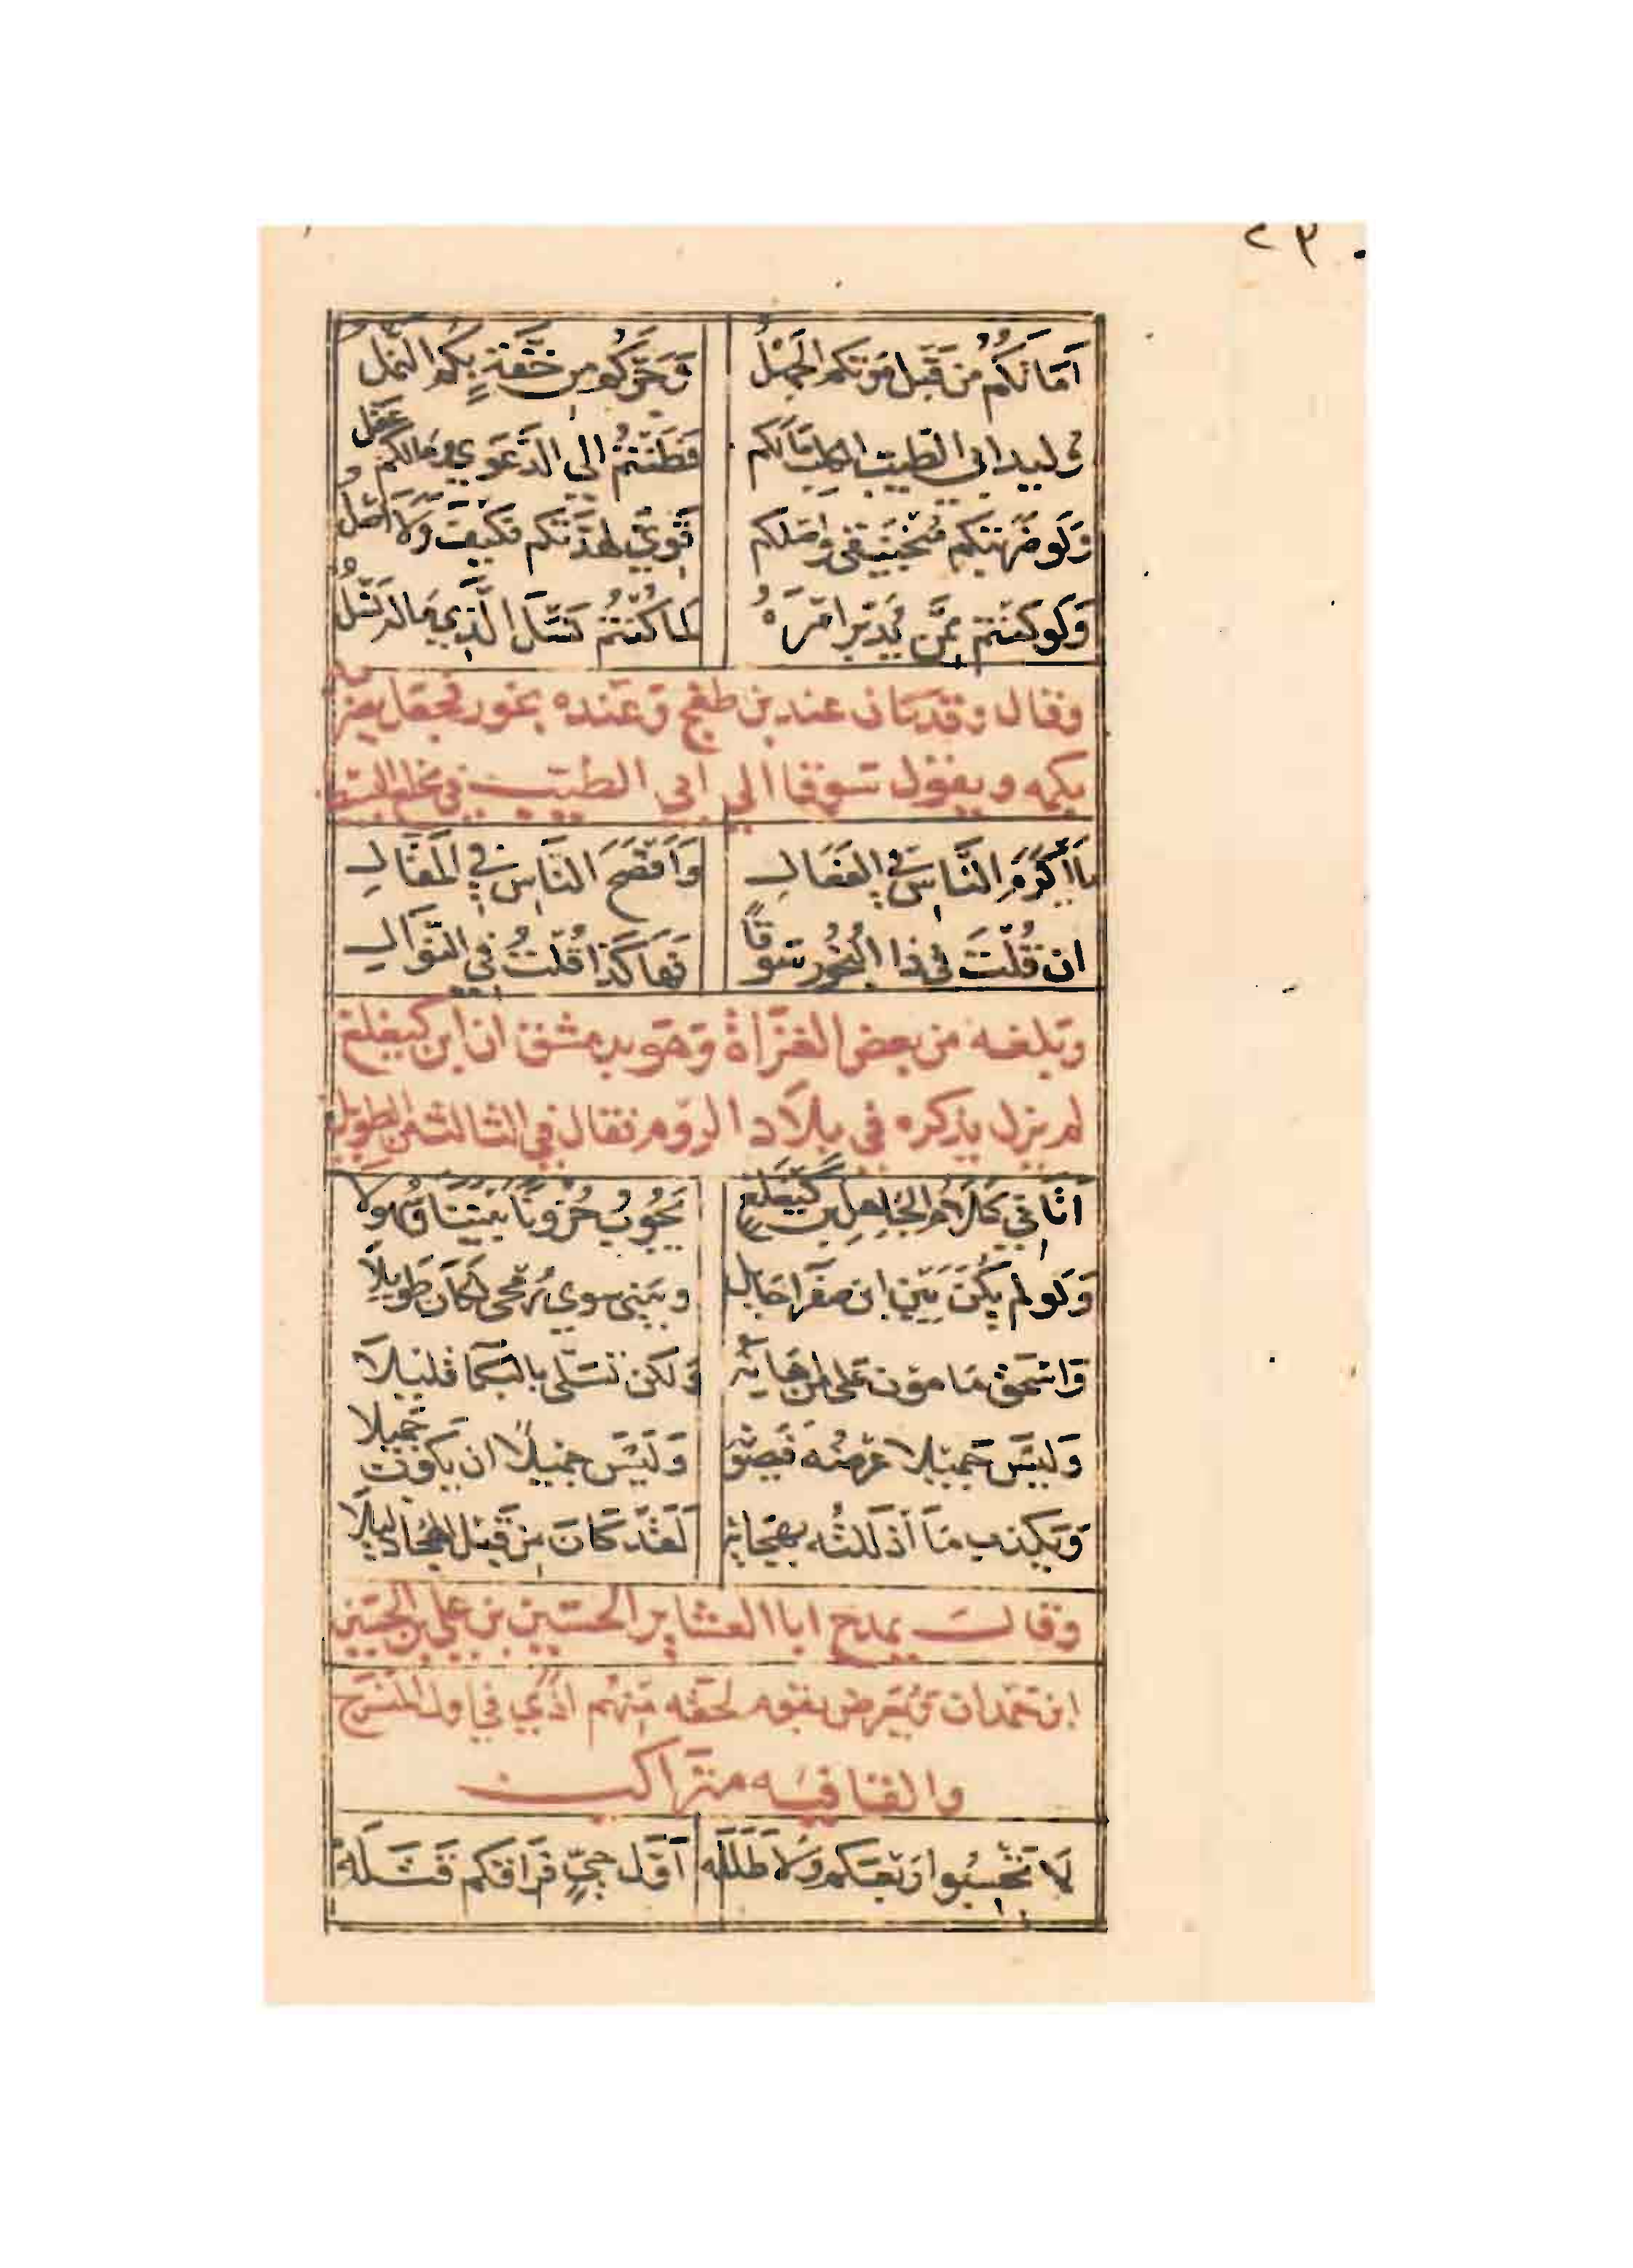 ٢٣٠
أَمَاتَكُمُ مِن قَبلِ مَوتِكم الجَهْلُ وَجَرَّكُم مِن خِفَّةٍ بِكُمُ النَّمْلُ
وليد ابي الطيب الكلب مالكم فَطَنْتُمُ الى الدَّعْوَي ومَالكُمُ عَقْلُ
وَلَو ضَرَبَتكم مَنْجَنِيقي واصلكم قَويٌّ لهدَّتكم فكيفَ وَلَا اصْلُ
وَلَو كنتم ممَّن يُدَبّر امْرَهُ لما كُنْتُمُ نَسْلَ الَّذي مَاله نَسْلُ
وقال وقد كان عند بن طغج وعنده بخور فجعل يعبر
بكمه ويقول سوقا الي أبي الطيب في مخلع البسيط
يا أكرَمَ النَّاسِ في الفَعَال وَأَفْصَحَ النَّاسِ في المَقَال
ان قُلْتَ في ذا البُخُورِ سَوقًا فَهَاكَذَا قُلْتُ في النَّوَال
وبلغه من بعض الغزاة وهو بدمشق ان ابن كيغلغ
لم يزل يذكره في بلاد الروم فقال في الثالث من الطويل
أَتَاني كَلَامُ الجَاهِلِ بن كَيَغلغ يَجُوبُ حُزُونًا بَيْنَنَا وَسُهُولا
وَلَو لم يَكُنْ بَيْنَ ابن صفرا حَايل وبَيني سوي رُمْحي لكَانَ طَويلًا
وَاسْحَق مَامون عَلي من اهَانَه وَلكن تسَلَّي بالبُكَا قليلا
وَليسَ جميلا عرضُه فيصونه وَلَيْسَ جميلًا ان يَكُون جَميلا
وَيكذب مَا أذللتُه بهجَائه لَقَد كَانَ مِن قَبْل الهجَا ذليلًا
وقال يمدح ابا العشاير الحسين بن علي بن الحسين
ابن حمدان ويعرض بقوم لحقه منهم اذي في اول المنسرح
والقافيه متراكب
لَا تَحْسِبُوا رَبْعَكم وَلَا طَلَلَه أَوَّلَ حيٍّ فِرَاقكم قَتَلَهُ